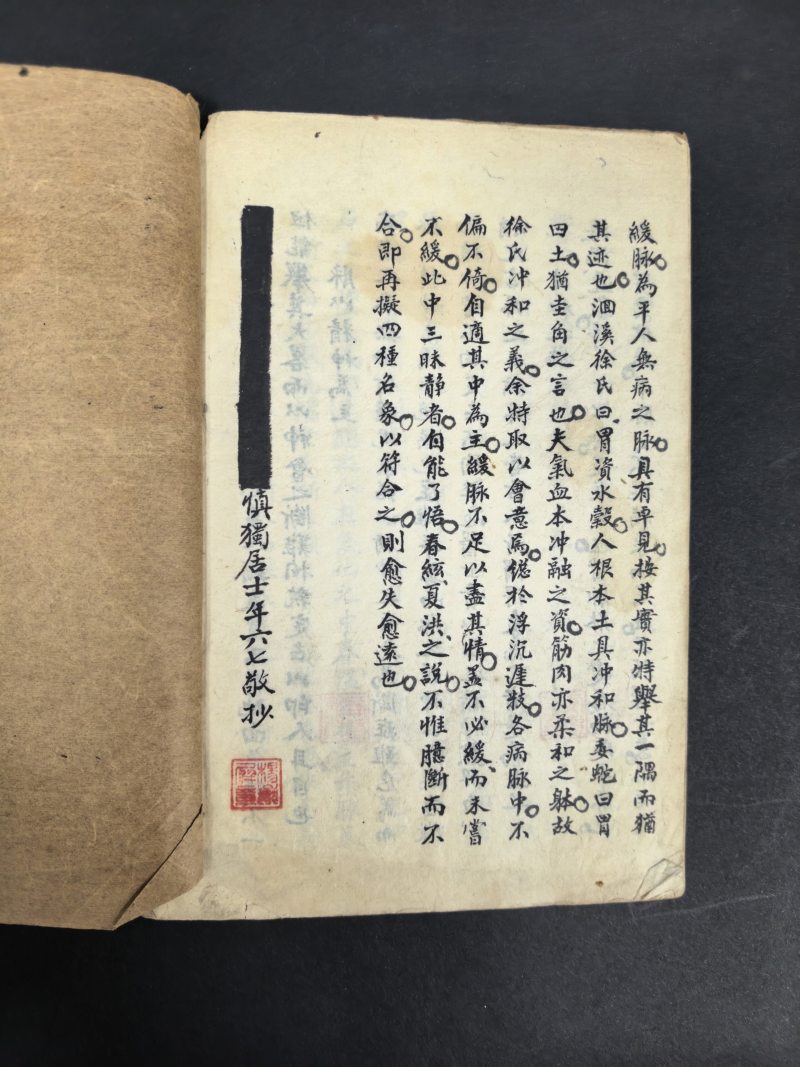 緩脉。為平人無病之脉。具有平見。按其實亦特舉其一隅而猶
其迹也。洄溪徐氏曰。胃資水穀。人根本土具冲和。脉委蛇曰胃
曰土。猶圭角之言也。夫氣血本冲融之資。筋肉亦柔和之躰。故
徐氏冲和之義。余特取以會意焉。從於浮沉遲数。各病脉中。不
偏不倚。自適其中為主。緩脉不足以盡其情。盖不必緩、而未嘗
不緩。此中三昧静者。自能了悟。春絃、夏洪、之説。不惟臆斷而不
合。即再擬四種名象。以符合之。則愈失愈遠也。
慎獨居士年六七敬抄